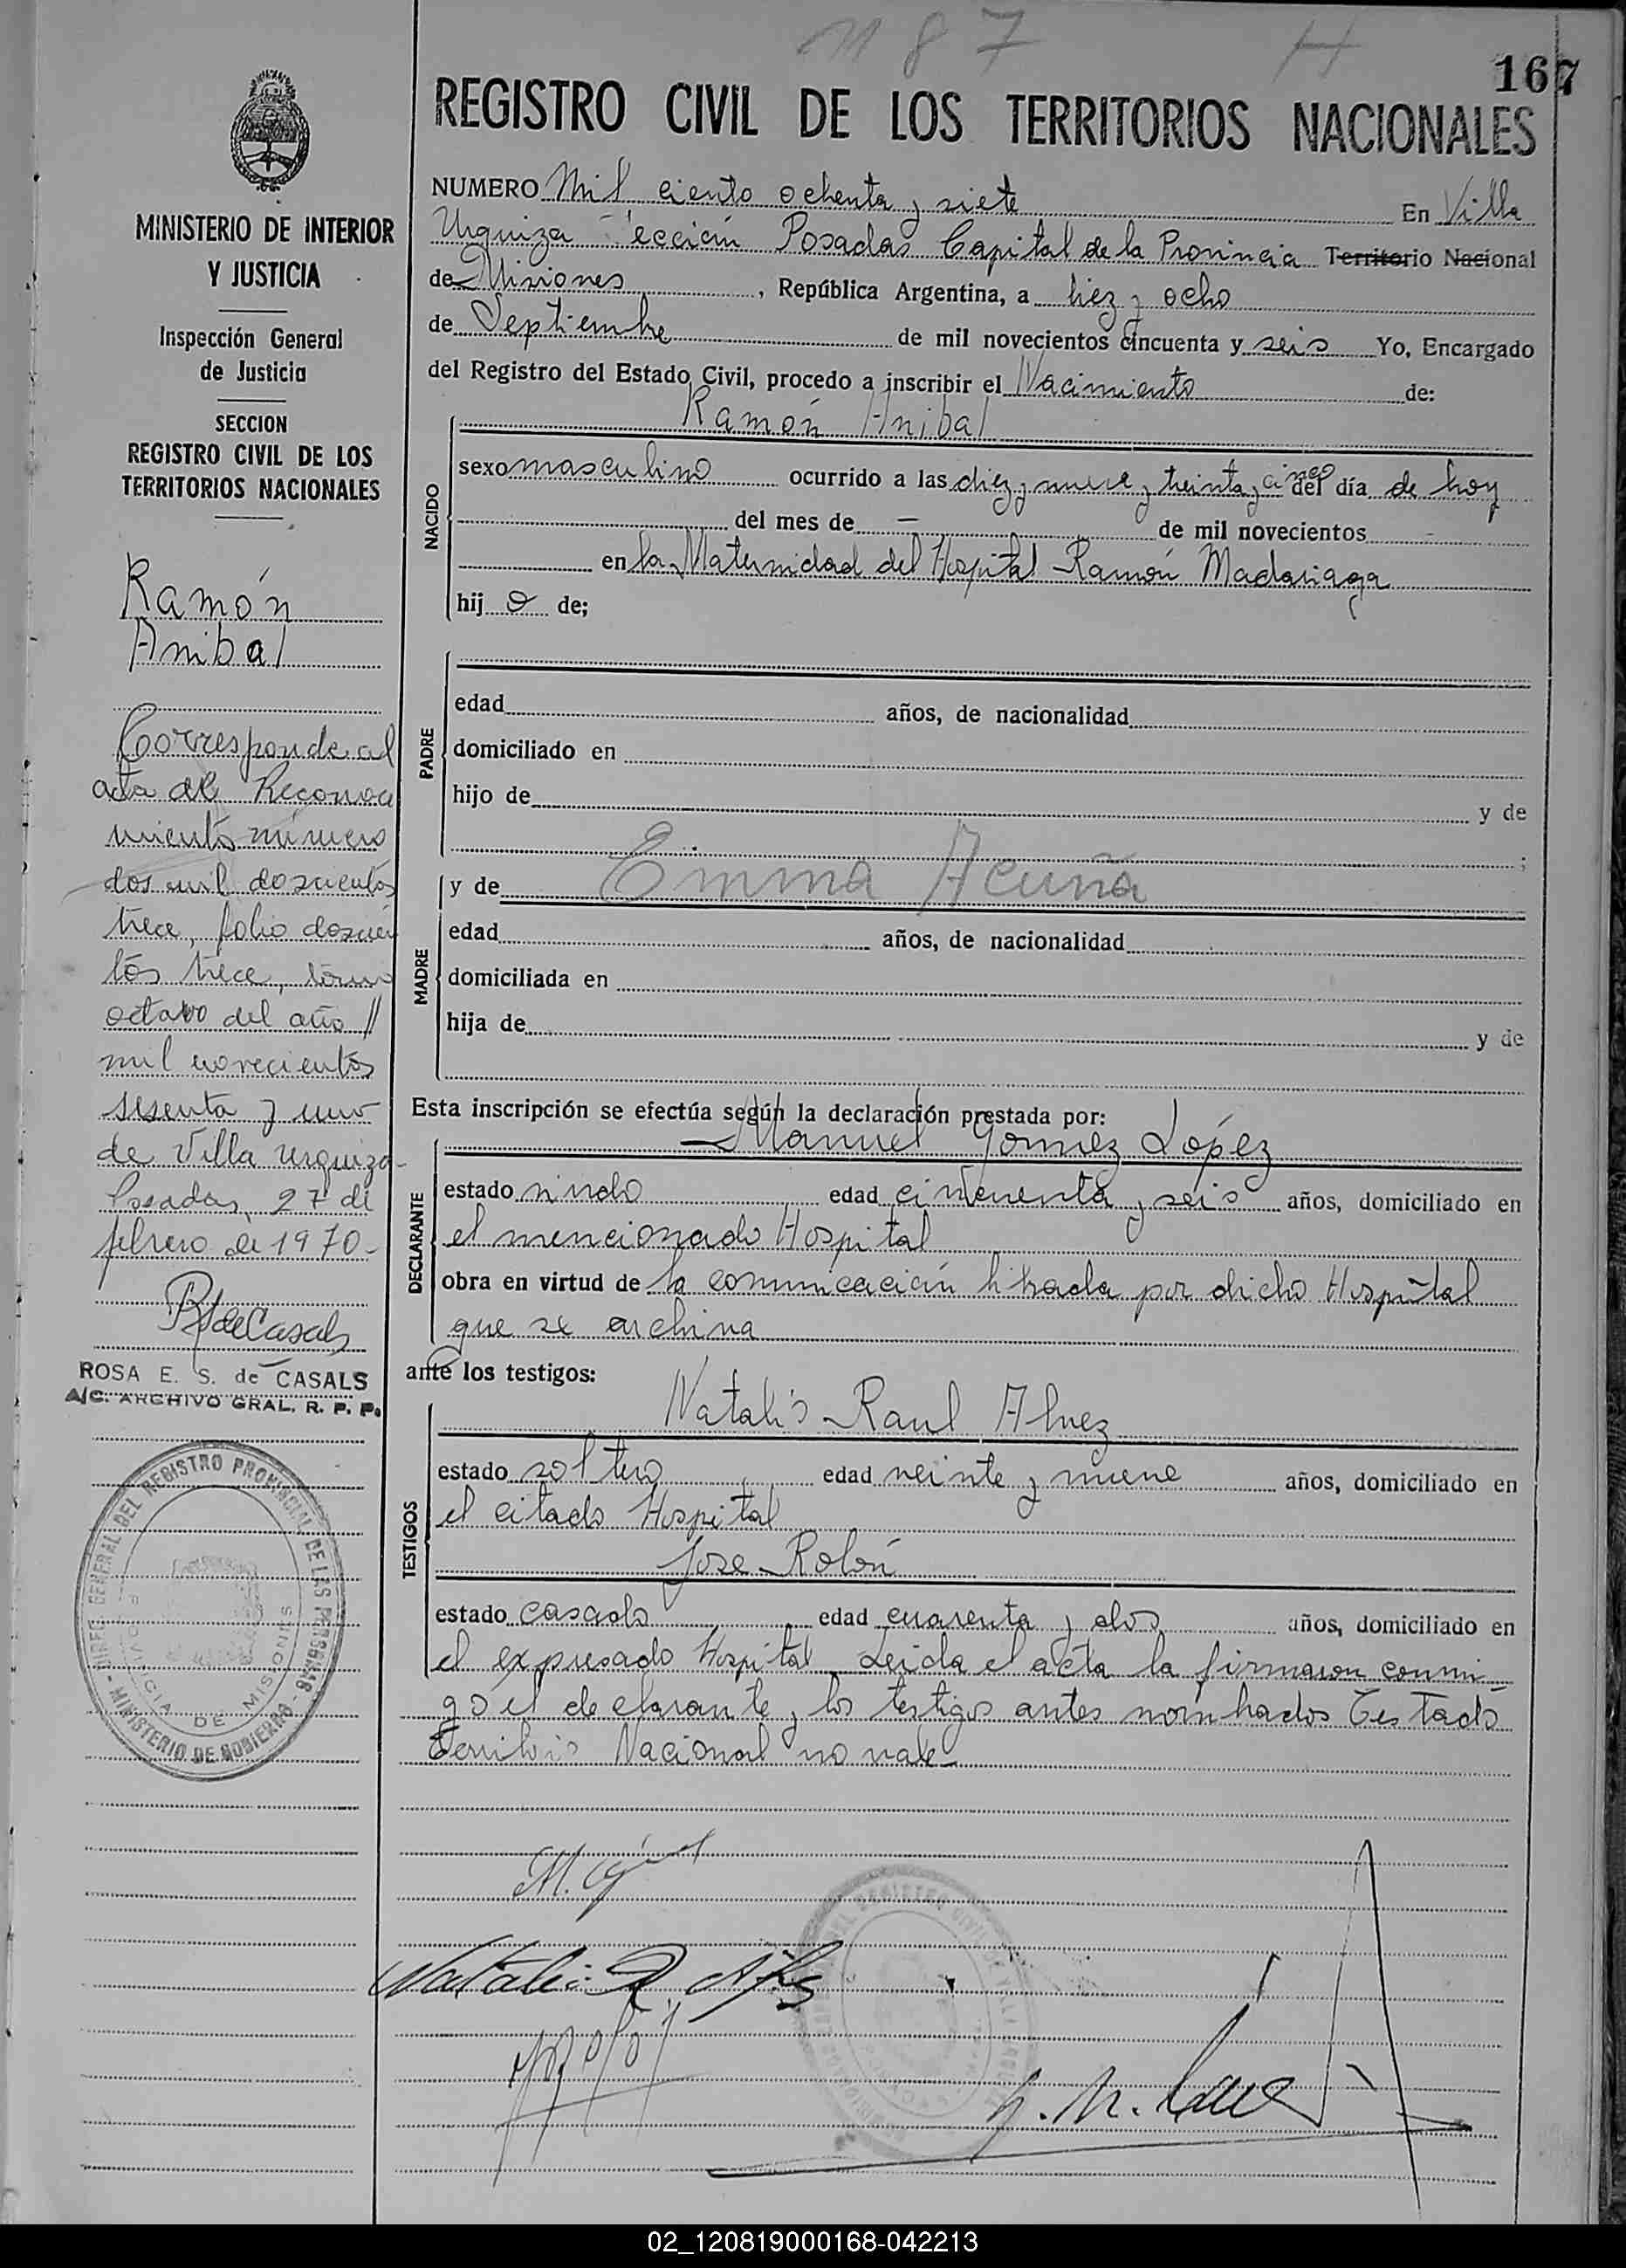 1187 H
167
REGISTRO CIVIL DE LOS TERRITORIOS NACIONALES
NUMERO Mil ciento ochenta y siete En Villa
Urquiza Sección Posadas Capital de la Provincia Territorio Nacional
de Misiones, República Argentina, a diez y ocho
de Septiembre de mil novecientos cincuenta y seis Yo, Encargado
del Registro del Estado Civil, procedo a inscribir el Nacimiento de:
NACIDO
Ramón Anibal
sexo masculino ocurrido a las diez y nueve y treinta y cinco del día de hoy
del mes de — de mil novecientos -
en la Maternidad del Hospital Ramón Madariaga
hij o de;
PADRE
edad años, de nacionalidad
domiciliado en
hijo de y de
;
MADRE
y de Emma Acuña
edad años, de nacionalidad
domiciliada en
hija de y de
Esta inscripción se efectúa según la declaración prestada por:
DECLARANTE
Manuel Gomez López
estado viudo edad cincuenta y seis años, domiciliado en
el mencionado Hospital
obra en virtud de la comunicación librada por dicho Hospital
que se archiva
ante los testigos:
TESTIGOS
Natalio Raul Alvez
estado soltero edad veinte y nueve años, domiciliado en
el citado Hospital
Jose Rolón
estado casado edad cuarenta y dos años, domiciliado en
el expresado Hospital. Leida el acta la firmaron conmi
go el declarante y los testigos antes nombrados Testado
Territorio Nacional no vale
MINISTERIO DE INTERIOR
Y JUSTICIA
Inspección General
de Justicia
SECCION
REGISTRO CIVIL DE LOS
TERRITORIOS NACIONALES
Ramón
Anibal
Corresponde al
acta de Reconoci
miento número
dos mil doscientos
trece, folio doscien
tos trece, tomo
octavo del año //
mil novecientos
sesenta y uno
de Villa Urquiza-
Posadas, 27 de
febrero de 1970-
RSdeCasals
ROSA E. S. de CASALS
A/C. ARCHIVO GRAL. R. P. P.
GENERAL DEL REGISTRO PROVINCIAL DE LAS PERSONAS
PROVINCIA DE MISIONES
- MINISTERIO DE GOBIERNO -
02_120819000168-042213